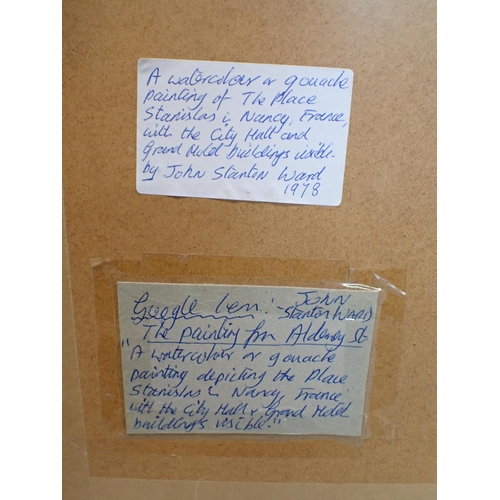 A watercolour or gouache
painting of The Place
Stanislas in Nancy, France,
with the City Hall and
Grand Hotel buildings visible.
by John Stanton Ward
1978
Google Lens: JOHN
Stanton WARD
"The painting from Alderney St
A watercolour or gouache
painting depicting the Place
Stanislas in Nancy, France,
with the City Hall & Grand Hotel
buildings visible."